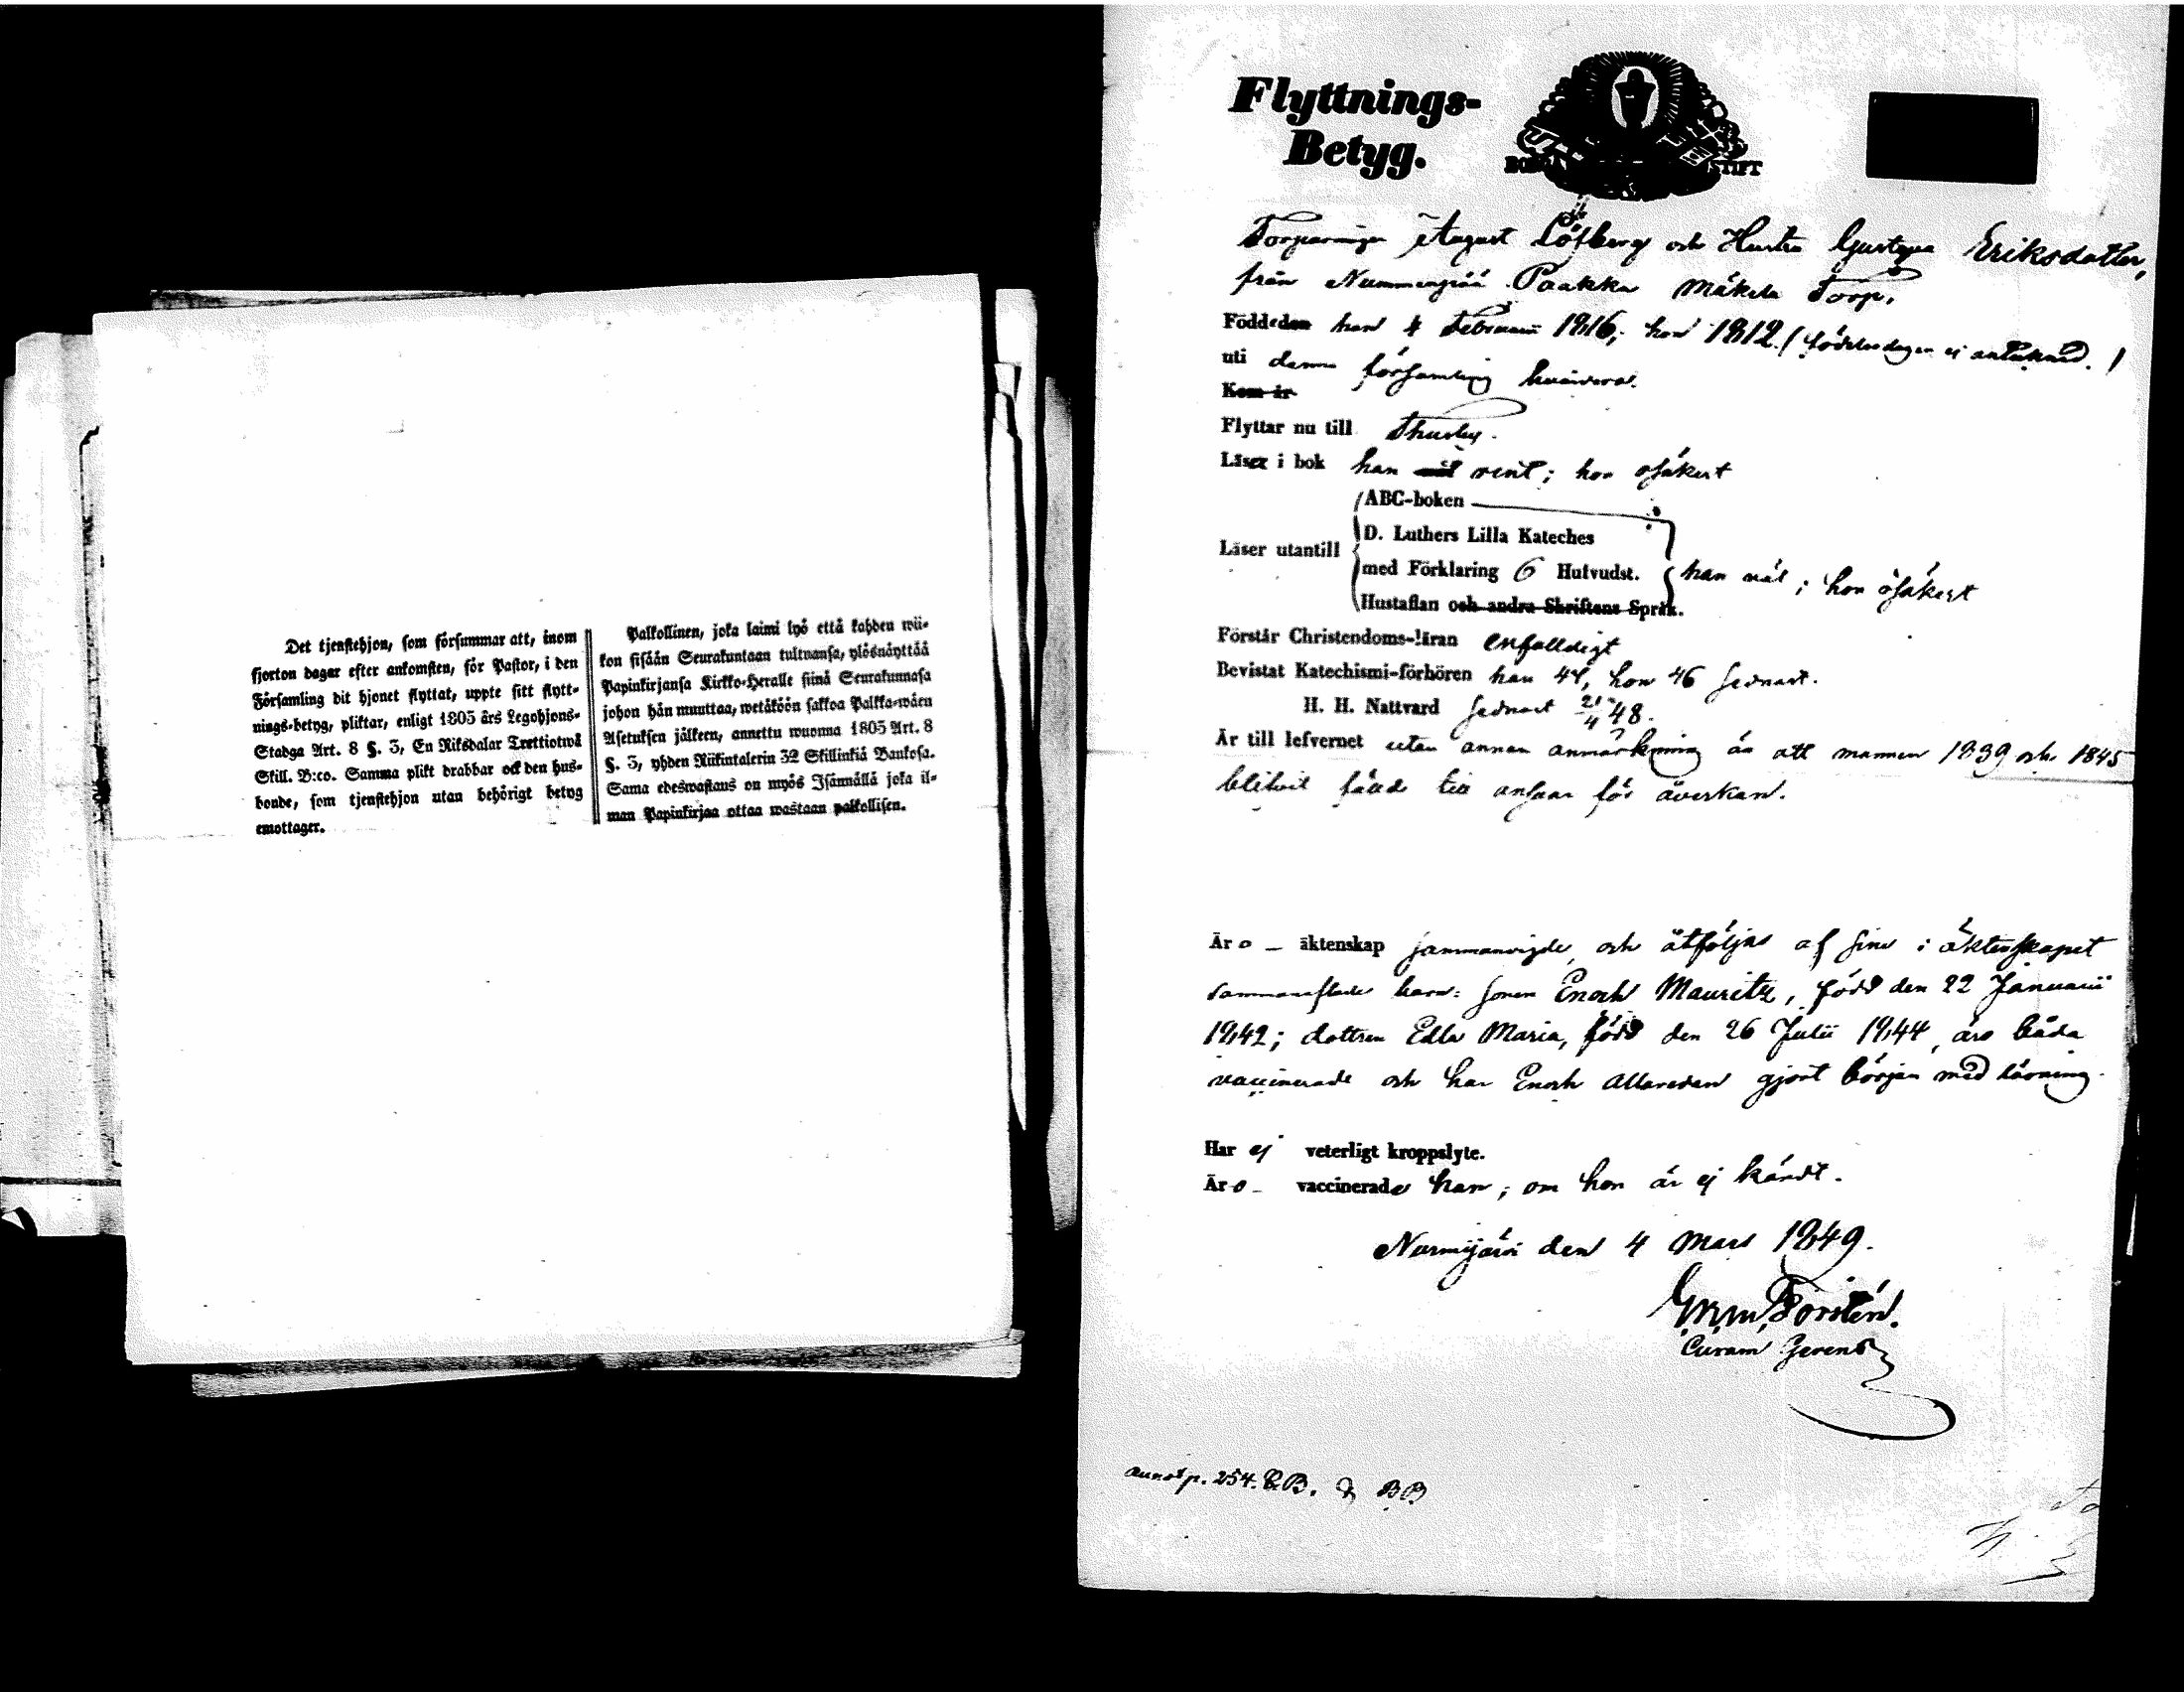 Det tjenstehjon, som försummar att, inom
fjorton dagar efter ankomsten, för Pastor, i den
Församling dit hjonet flyttat, uppte sitt flytt-
nings-betyg, pliktar, enligt 1805 års Legohjons-
Stadga Art. 8 §. 3, En Riksdalar Trettiotwå
Skill. B:co. Samma plikt drabbar ock den hus-
bonde, som tjenstehjon utan behörigt betyg
emottager.
Palkollinen, joka laimi lyö että kahden wii-
kon sisään Seurakuntaan tultuansa, ylösnäyttää
Papinkirjansa Kirkko-Heralle siinä Seurakunnasa
johon hän muuttaa, wetäköön sakkoa Palkka-wäen
Asetuksen jälkeen, annettu wuonna 1805 Art. 8
§. 3, yhden Riikintalerin 32 Skillinkiä Bankosa.
Sama edeswastaus on myös Isännällä joka il-
man Papinkirjaa ottaa wastaan palkollisen.
Flyttnings-
Betyg.
STIFT
August Löfberg och Hustru Gustava Eriksdotter,
från Nummenpää Paakka Mäkelä Torp.
Födde den han 4 Februarii 1816; hon 1812. (födelsedagen ej antecknad.)
uti denna församling hvardera.
Kom år
Flyttar nu till Thusby.
Läser i bok han väl rent; hon osäkert
ABC-boken
D. Luthers Lilla Kateches
Läser utantill
med Förklaring 6 Hufvudst. han väl; hon osäkert
Hustaflan och andra Skriftens Språk.
Förstår Christendoms-läran enfaldigt
Bevistat Katechismi-förhören han 47, hon 46 sednast.
H. H. Nattvard sednast 21/4 48.
Är till lefvernet utan annan anmärkning än att mannen 1839 och 1845
blifvit fälld till ansvar för åverkan.
Är o äktenskap sammanvigde, och åtföljas af sine i äktenskapet
sammanaflade barn: sonen Enoch Mauritz, född den 22 Januarii
1842; dottren Edla Maria, född den 26 Julii 1844, äro båda
vaccinerade och har Enoch allaredan gjort början med läsning.
Har ej veterligt kroppslyte.
Är o vaccinerade han; om hon är ej kändt.
Nurmijärvi den 4 Mars 1849.
Forstén.
Curam Gerens
p. 254. BB